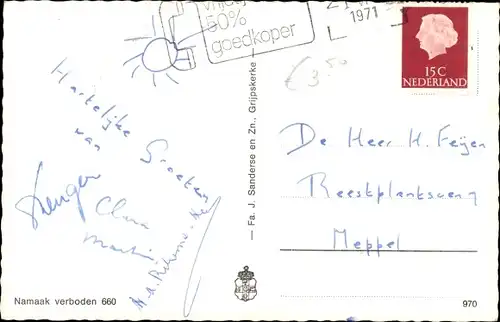 50%
goedkoper
1971
€ 3,50
15 C
NEDERLAND
Hartelijke Groeten
van
Clara
Martin
De Heer H. Feijen
Reestplantsoeng
Meppel
— Fa. J. Sanderse en Zn., Grijpskerke —
Namaak verboden 660
970